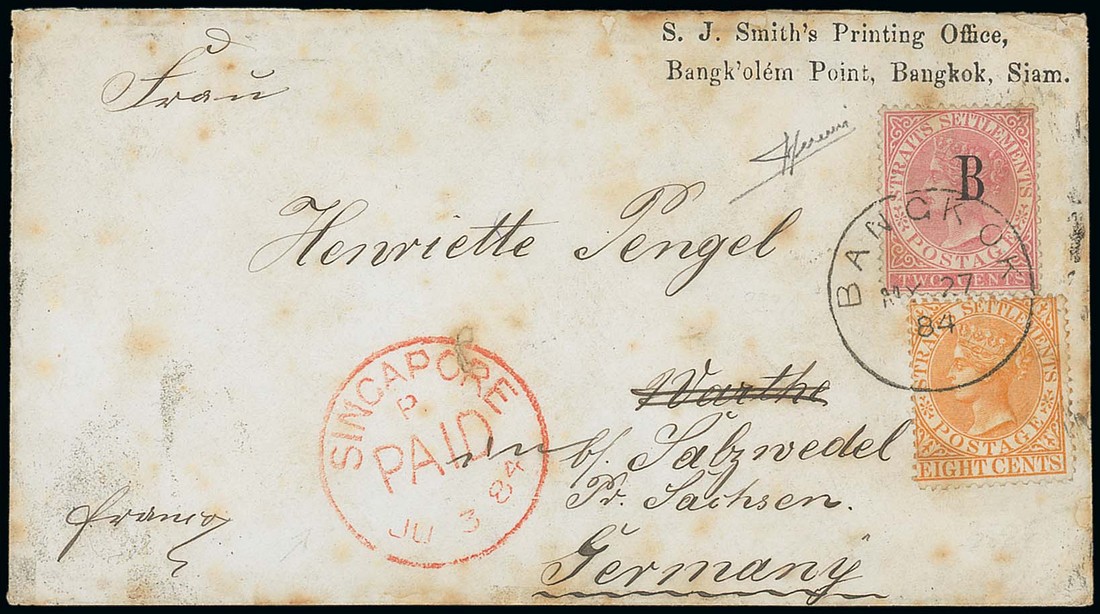 S. J. Smith's Printing Office,
Bangk'olém Point, Bangkok, Siam.
Frau
Henriette Pengel
Warthe
b/ Salzwedel
Pr. Sachsen.
Germany
franco
STRAITS SETTLEMENTS
B
POSTAGE
TWO CENTS
BANGKOK
MY 27
84
STRAITS SETTLEMENTS
POSTAGE
EIGHT CENTS
SINGAPORE
P
PAID
JU 3 84